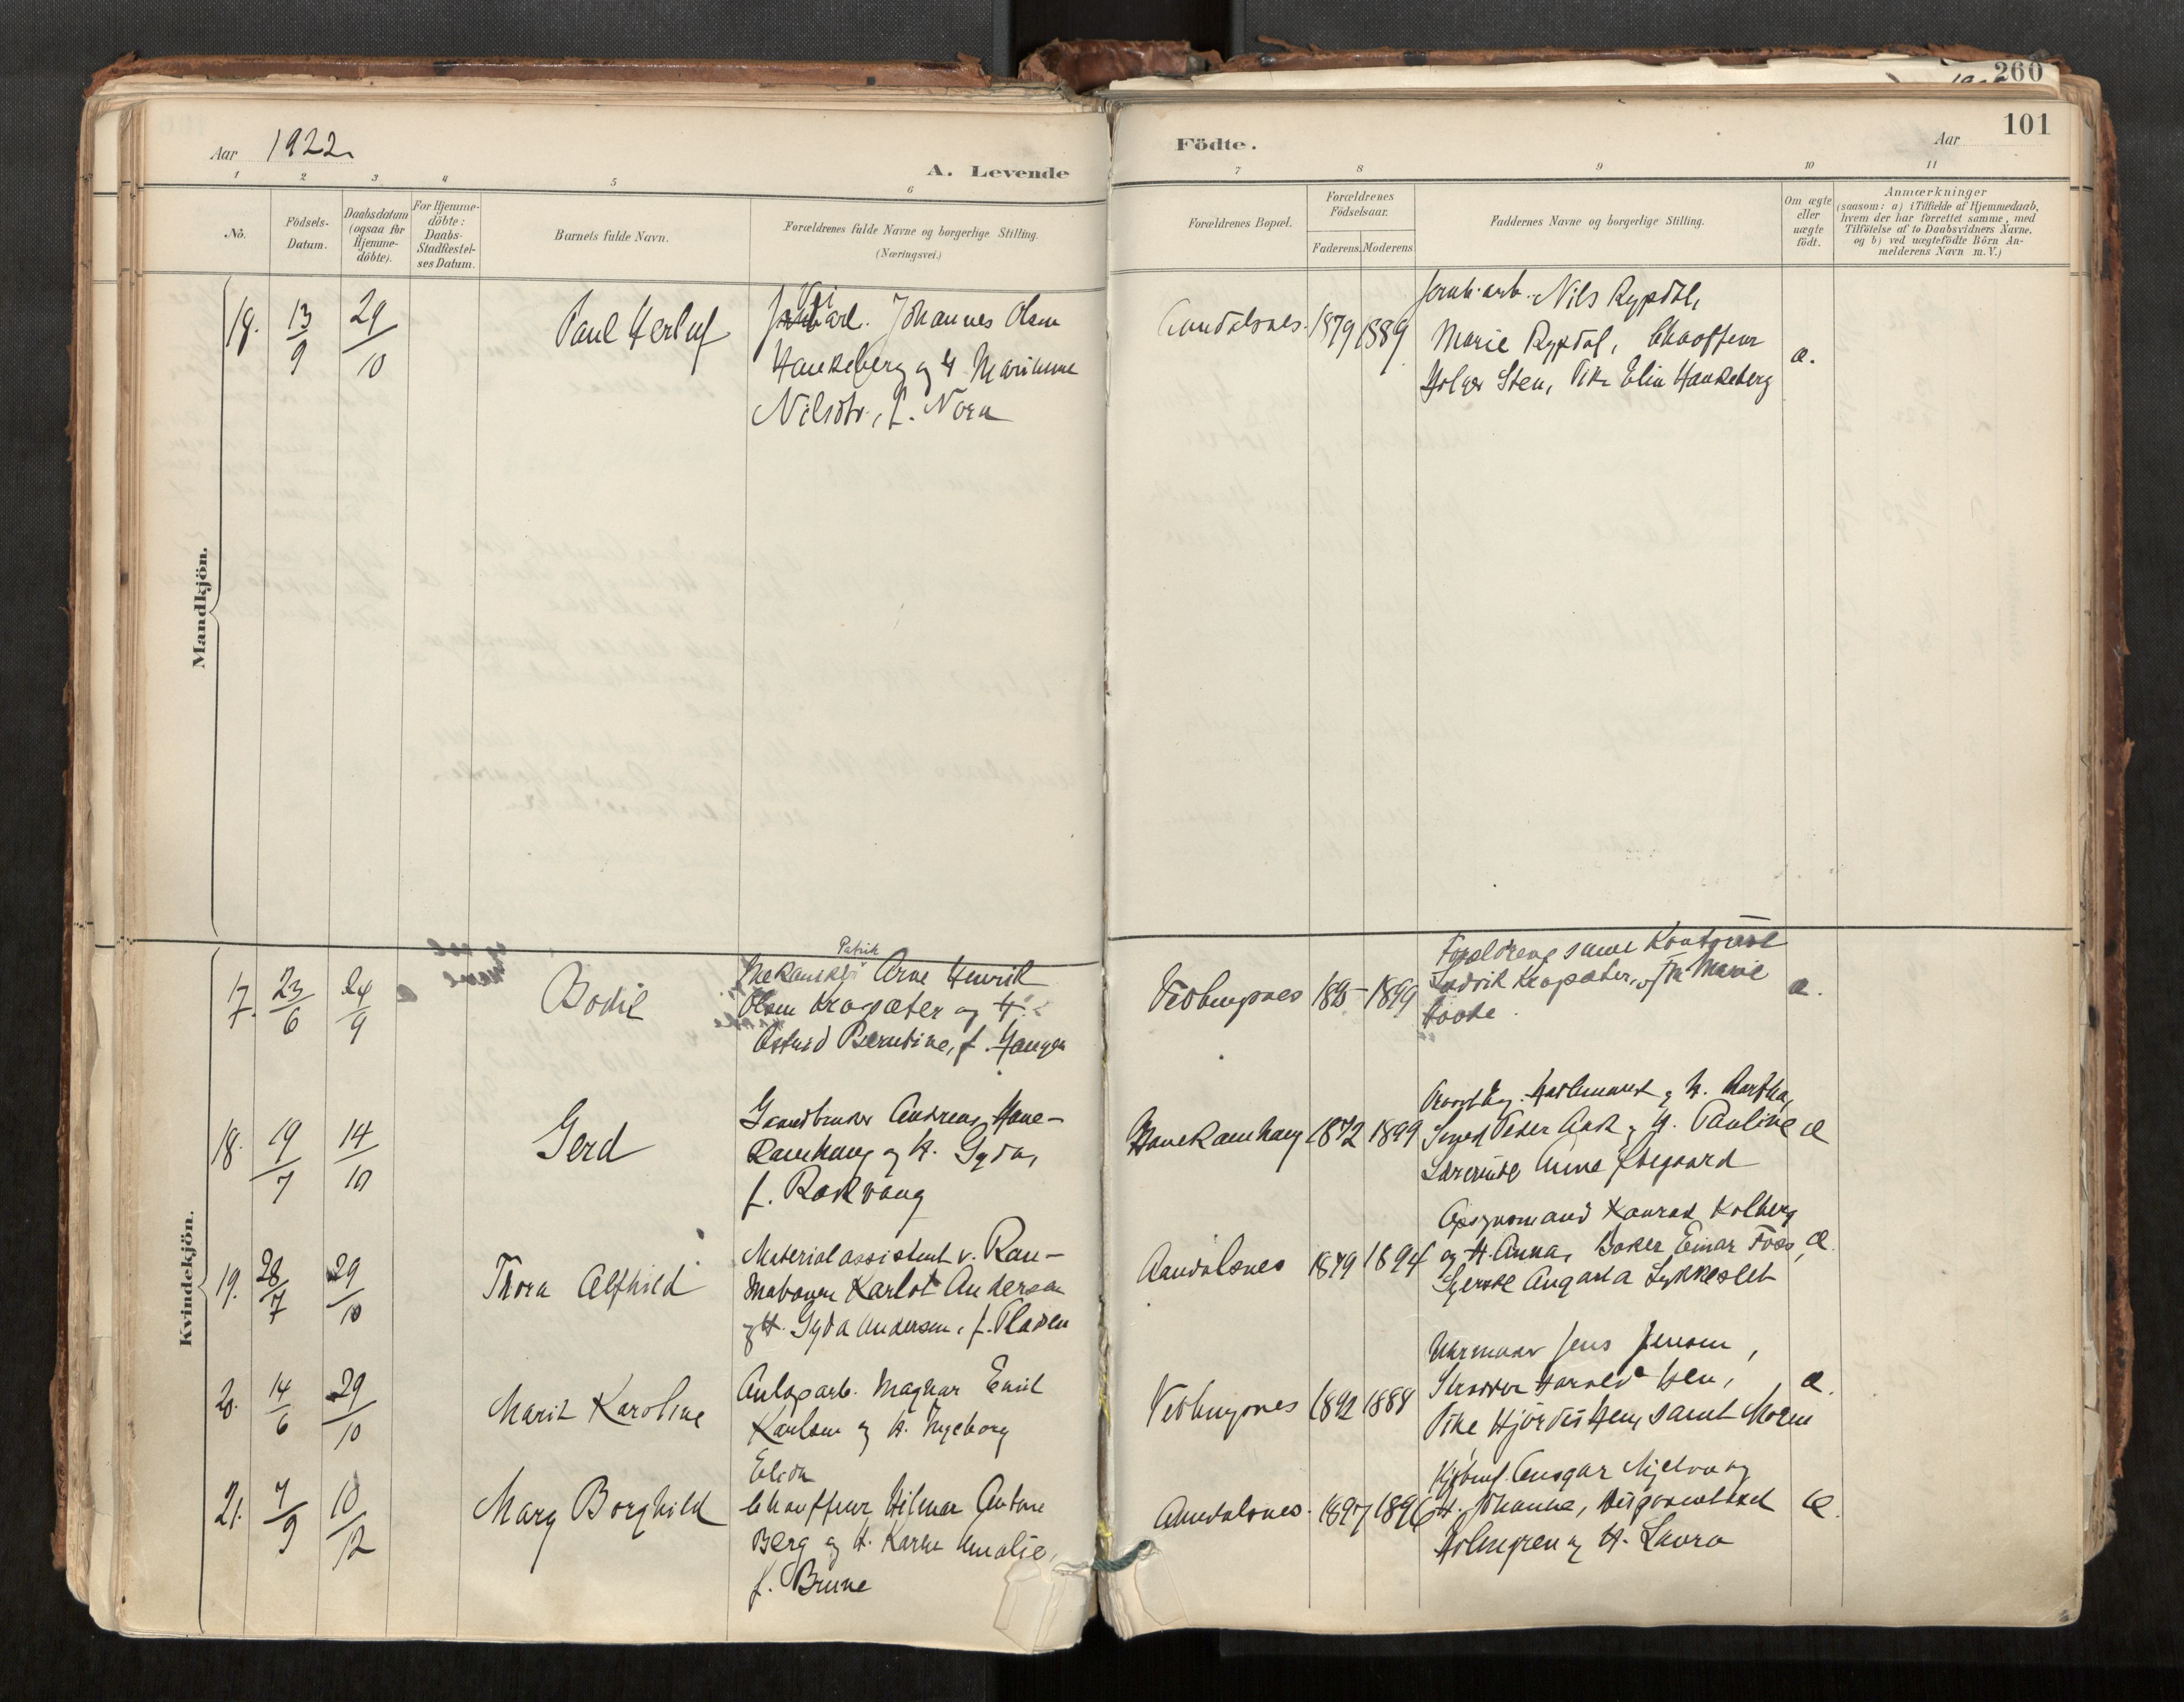 260
101
Aar 1922
A. Levende
Födte.
Aar
1 2 3 4 5 6 7 8 9 10 11
No.
Födsels-
Datum.
Daabsdatum
(ogsaa for
Hjemme-
döbte).
For Hjemme-
döbte:
Daabs-
Stadfæstel-
ses Datum.
Barnets fulde Navn.
Forældrenes fulde Navne og borgerlige Stilling.
(Næringsvei.)
Forældrenes Bopæl.
Forældrenes
Födselsaar.
Faderens. Moderens
Faddernes Navne og borgerlige Stilling.
Om ægte
eller
uægte
födt.
Anmærkninger
(saasom: a) i Tilfælde af Hjemmedaab,
hvem der har forrettet samme, med
Tilföielse af to Daabsvidners Navne,
og b) ved uægtefödte Börn An-
melderens Navn m. V.)
Mandkjön.
19. 13/9 29/10
Paul Herluf
Vei
arb. Johannes Olsen
Haukeberg og H. Marianne
Nilsdtr., f. Nora
Aandalsnes. 1879 1889
Jernb. arb. Nils Rypdal,
Marie Rypdal, Chauffeur
Holger Sten, Pike Elin Haukeberg
æ.
Kvindekjön.
17. 23/6 24/9
Bodil
Patrik
Arne Henrik
Olsen Kropæter og H.
Astrid Berntine, f. Haugen
Veblungsnes 1895 1899
Forældrene samt Kontorist
Kropæter, Marie
æ.
18. 19/7 14/10
Gerd
Gaardbruker Andreas Hane-
kamhaug og H. Gyda,
f. Rokvang
Hanekamhaug 1872 1899
og H. Martha,
Peder Aak og H. Pauline
Lærerinde Anna Østgaard
æ
19. 28/7 29/10
Thora Alfhild
Materialassistent v. Rau-
mabanen Karlot Andersen
og H. Gyda Andersen, f. Pladsen
Aandalsnes 1879 1894
Opsynsmand Konrad Kolberg
og H. Anna, Baker Einar Foss,
Augusta Lykkeslet
æ.
20. 14/6 29/10
Marit Karoline
Anlægsarb. Magnar Emil
Karlsen og H. Ingeborg
Elida
Veblungsnes 1892 1888
Urmaker Jens Jensen,
Skrædder Harald Hen,
Pike Hjördis Hen, samt Moren
æ.
21. 7/9 10/12
Mary Borghild
Chauffeur Hilmar Antone
Berg og H. Karen Amalie,
f. Brune
Aandalsnes. 1897 1896
Ansgar Mjelva og
H. Johanna,
Holmgren og H. Laura
æ.